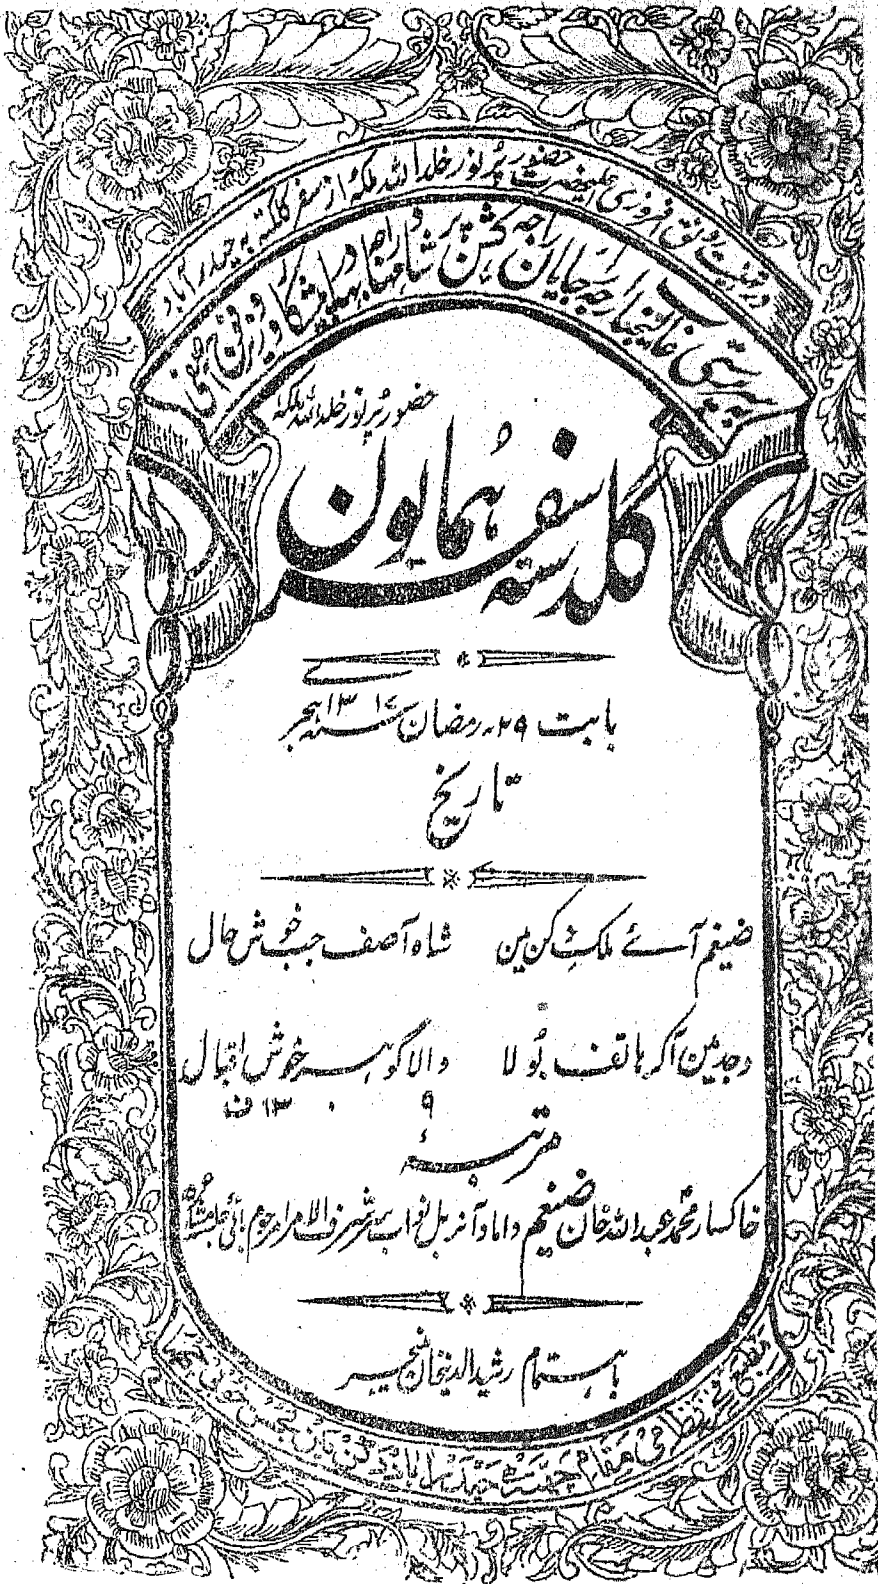 در تہنیت رونق افروزی اعلیحضرت حضور پُر نور خلد اللہ ملکہٗ از سفر کلکتہ بہ حیدرآباد
بہ سرپرستی عالیجناب راجہ راجایان راجہ کشن پرشاد مہاراجہ بہادر پیشکار وزیر فوج آصفی
حضور پُر نور خلد اللہ ملکہٗ
گلدستہ سفر ہُمایون
بابت ۲۹۔ رمضان ۱۳۱۷ سنہ ہجری
تاریخ
ضیغم آئے ملک دکن مین
شاہ آصف جب خوش حال
وجد مین آکر ہاتف بُولا
والا گوہر خوش اقبال
۱۳۰۹ ف
مرتبہٴ
خاکسار محمد عبداللہ خان ضیغم داماد آنربل نواب سر شرف الامرا مرحوم
باہتمام رشید الدینخان منیجر
مطبع نظامی مقام چھتہ حیدرآباد دکن مین